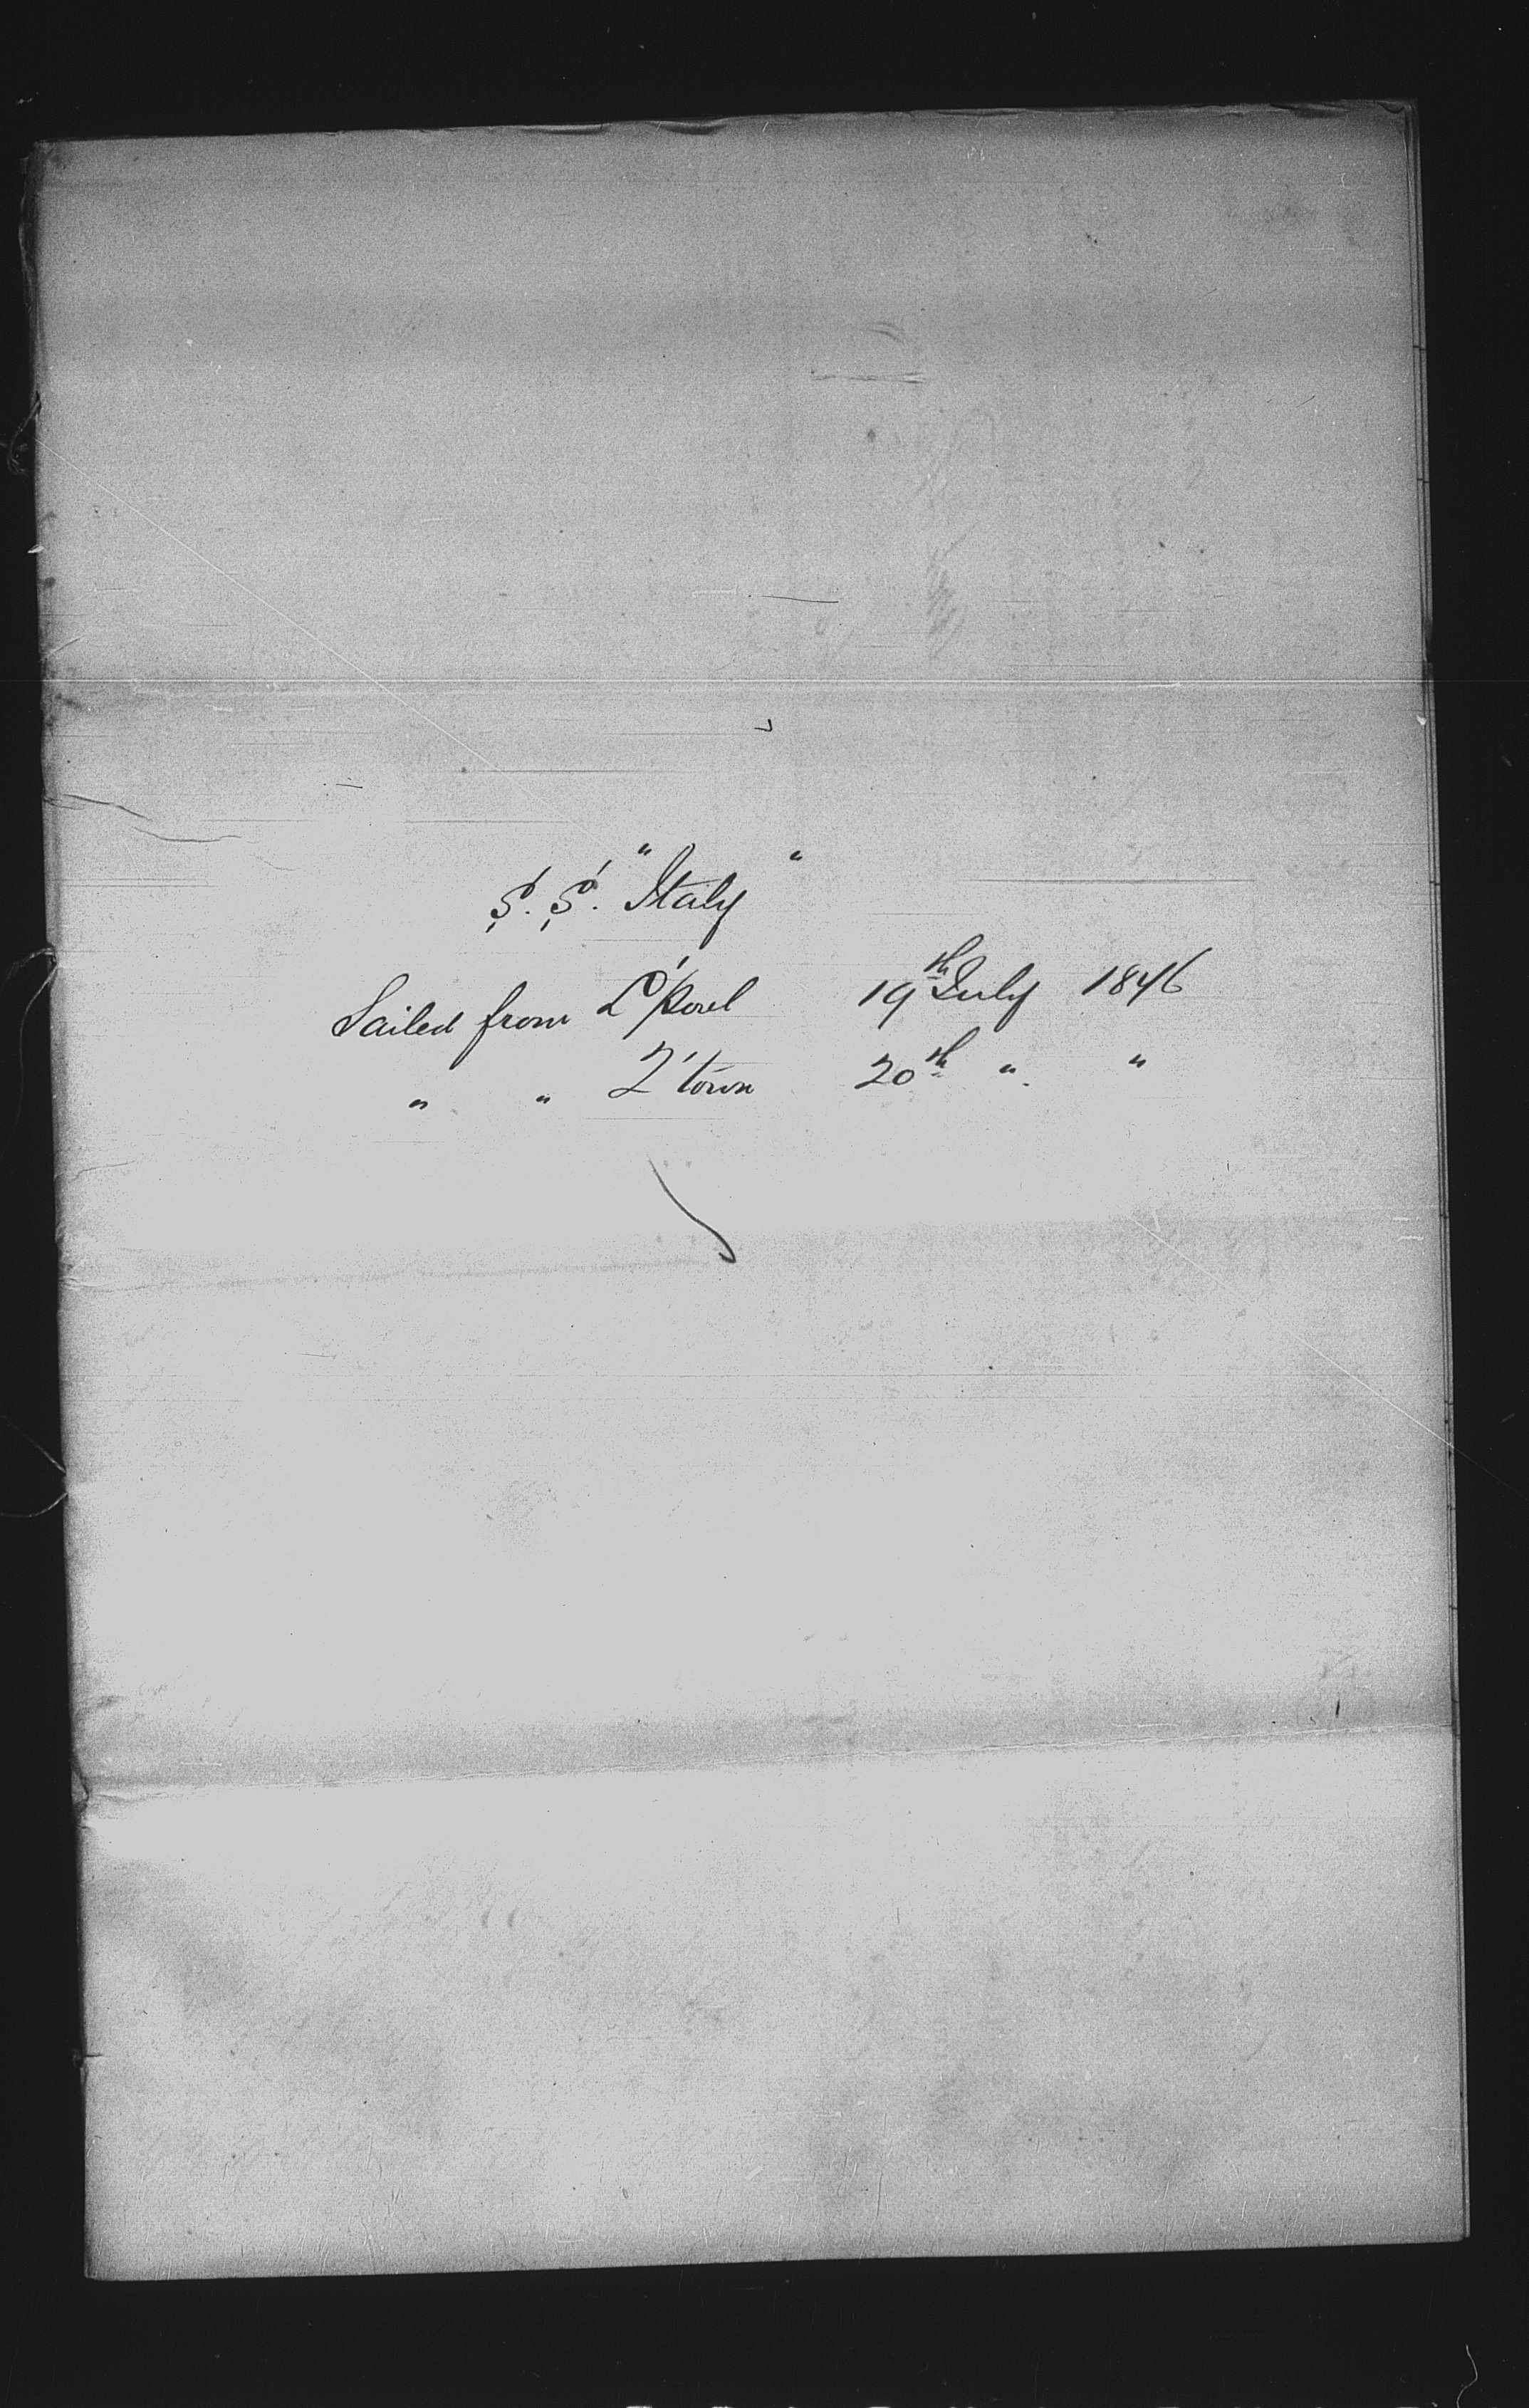 S. S. "Italy"
Sailed from L'pool 19th July 1876
" " Q'town 20th " "